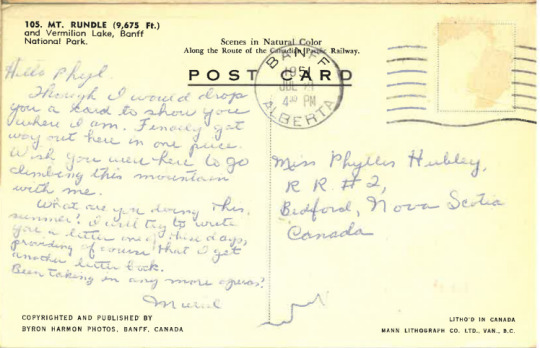 105. MT. RUNDLE (9,675 Ft.)
and Vermilion Lake, Banff
National Park.
Scenes in Natural Color
Along the Route of the Canadian Pacific Railway.
POST CARD
BANFF
1951
4 30 PM
ALBERTA
Hello Phyl.
Though I would drop
you a card to show you
where I am. Finally got
way out here in one piece.
Wish you were here to go
climbing this mountain
with me.
What are you doing this
summer? I will try to write
you a letter one of these days,
providing of course that I get
another letter back.
Been taking in any more operas?
Miss Phyllis Hubley,
R R # 2,
Bedford, Nova Scotia
Canada
COPYRIGHTED AND PUBLISHED BY
BYRON HARMON PHOTOS, BANFF, CANADA
LITHO'D IN CANADA
MANN LITHOGRAPH CO. LTD., VAN., B.C.